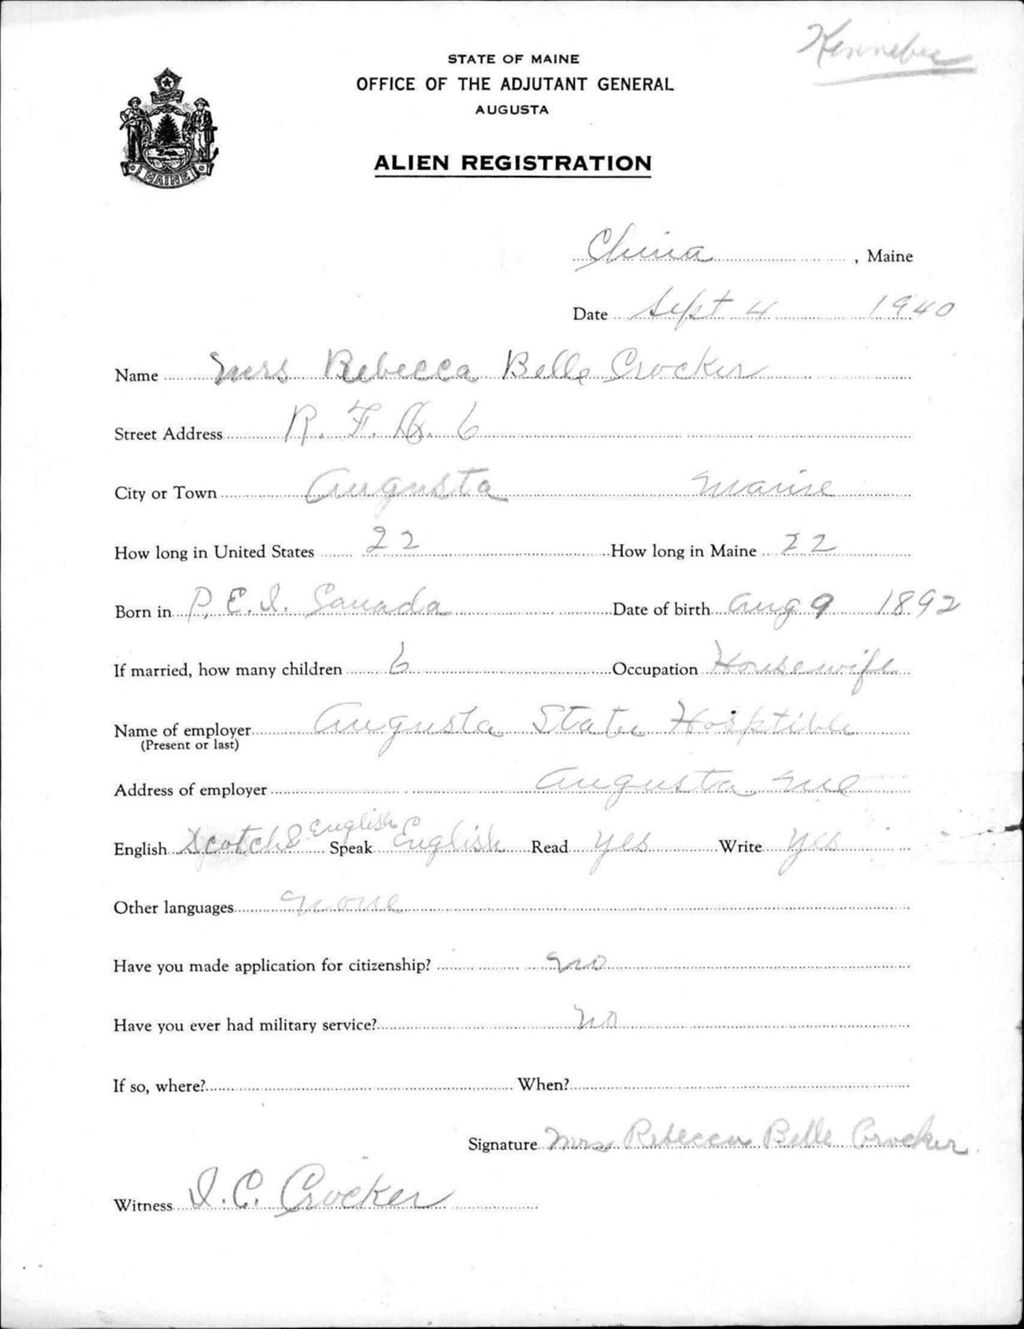 Kennebec
STATE OF MAINE
OFFICE OF THE ADJUTANT GENERAL
AUGUSTA
ALIEN REGISTRATION
MAINE
China, Maine
Date Sept 4 1940
Name Mrs Rebecca Belle Crocker
Street Address R. F. D. 6
City or Town Augusta Maine
How long in United States 22 How long in Maine 22
Born in P. E. I. Canada Date of birth Aug 9 1892
If married, how many children 6 Occupation Housewife
Name of employer Augusta State Hosptible
(Present or last)
Address of employer Augusta Me
English Scotch & English Speak English Read Yes Write Yes
Other languages None
Have you made application for citizenship? No
Have you ever had military service? No
If so, where? When?
Signature Mrs Rebecca Belle Crocker
Witness I. C. Crocker